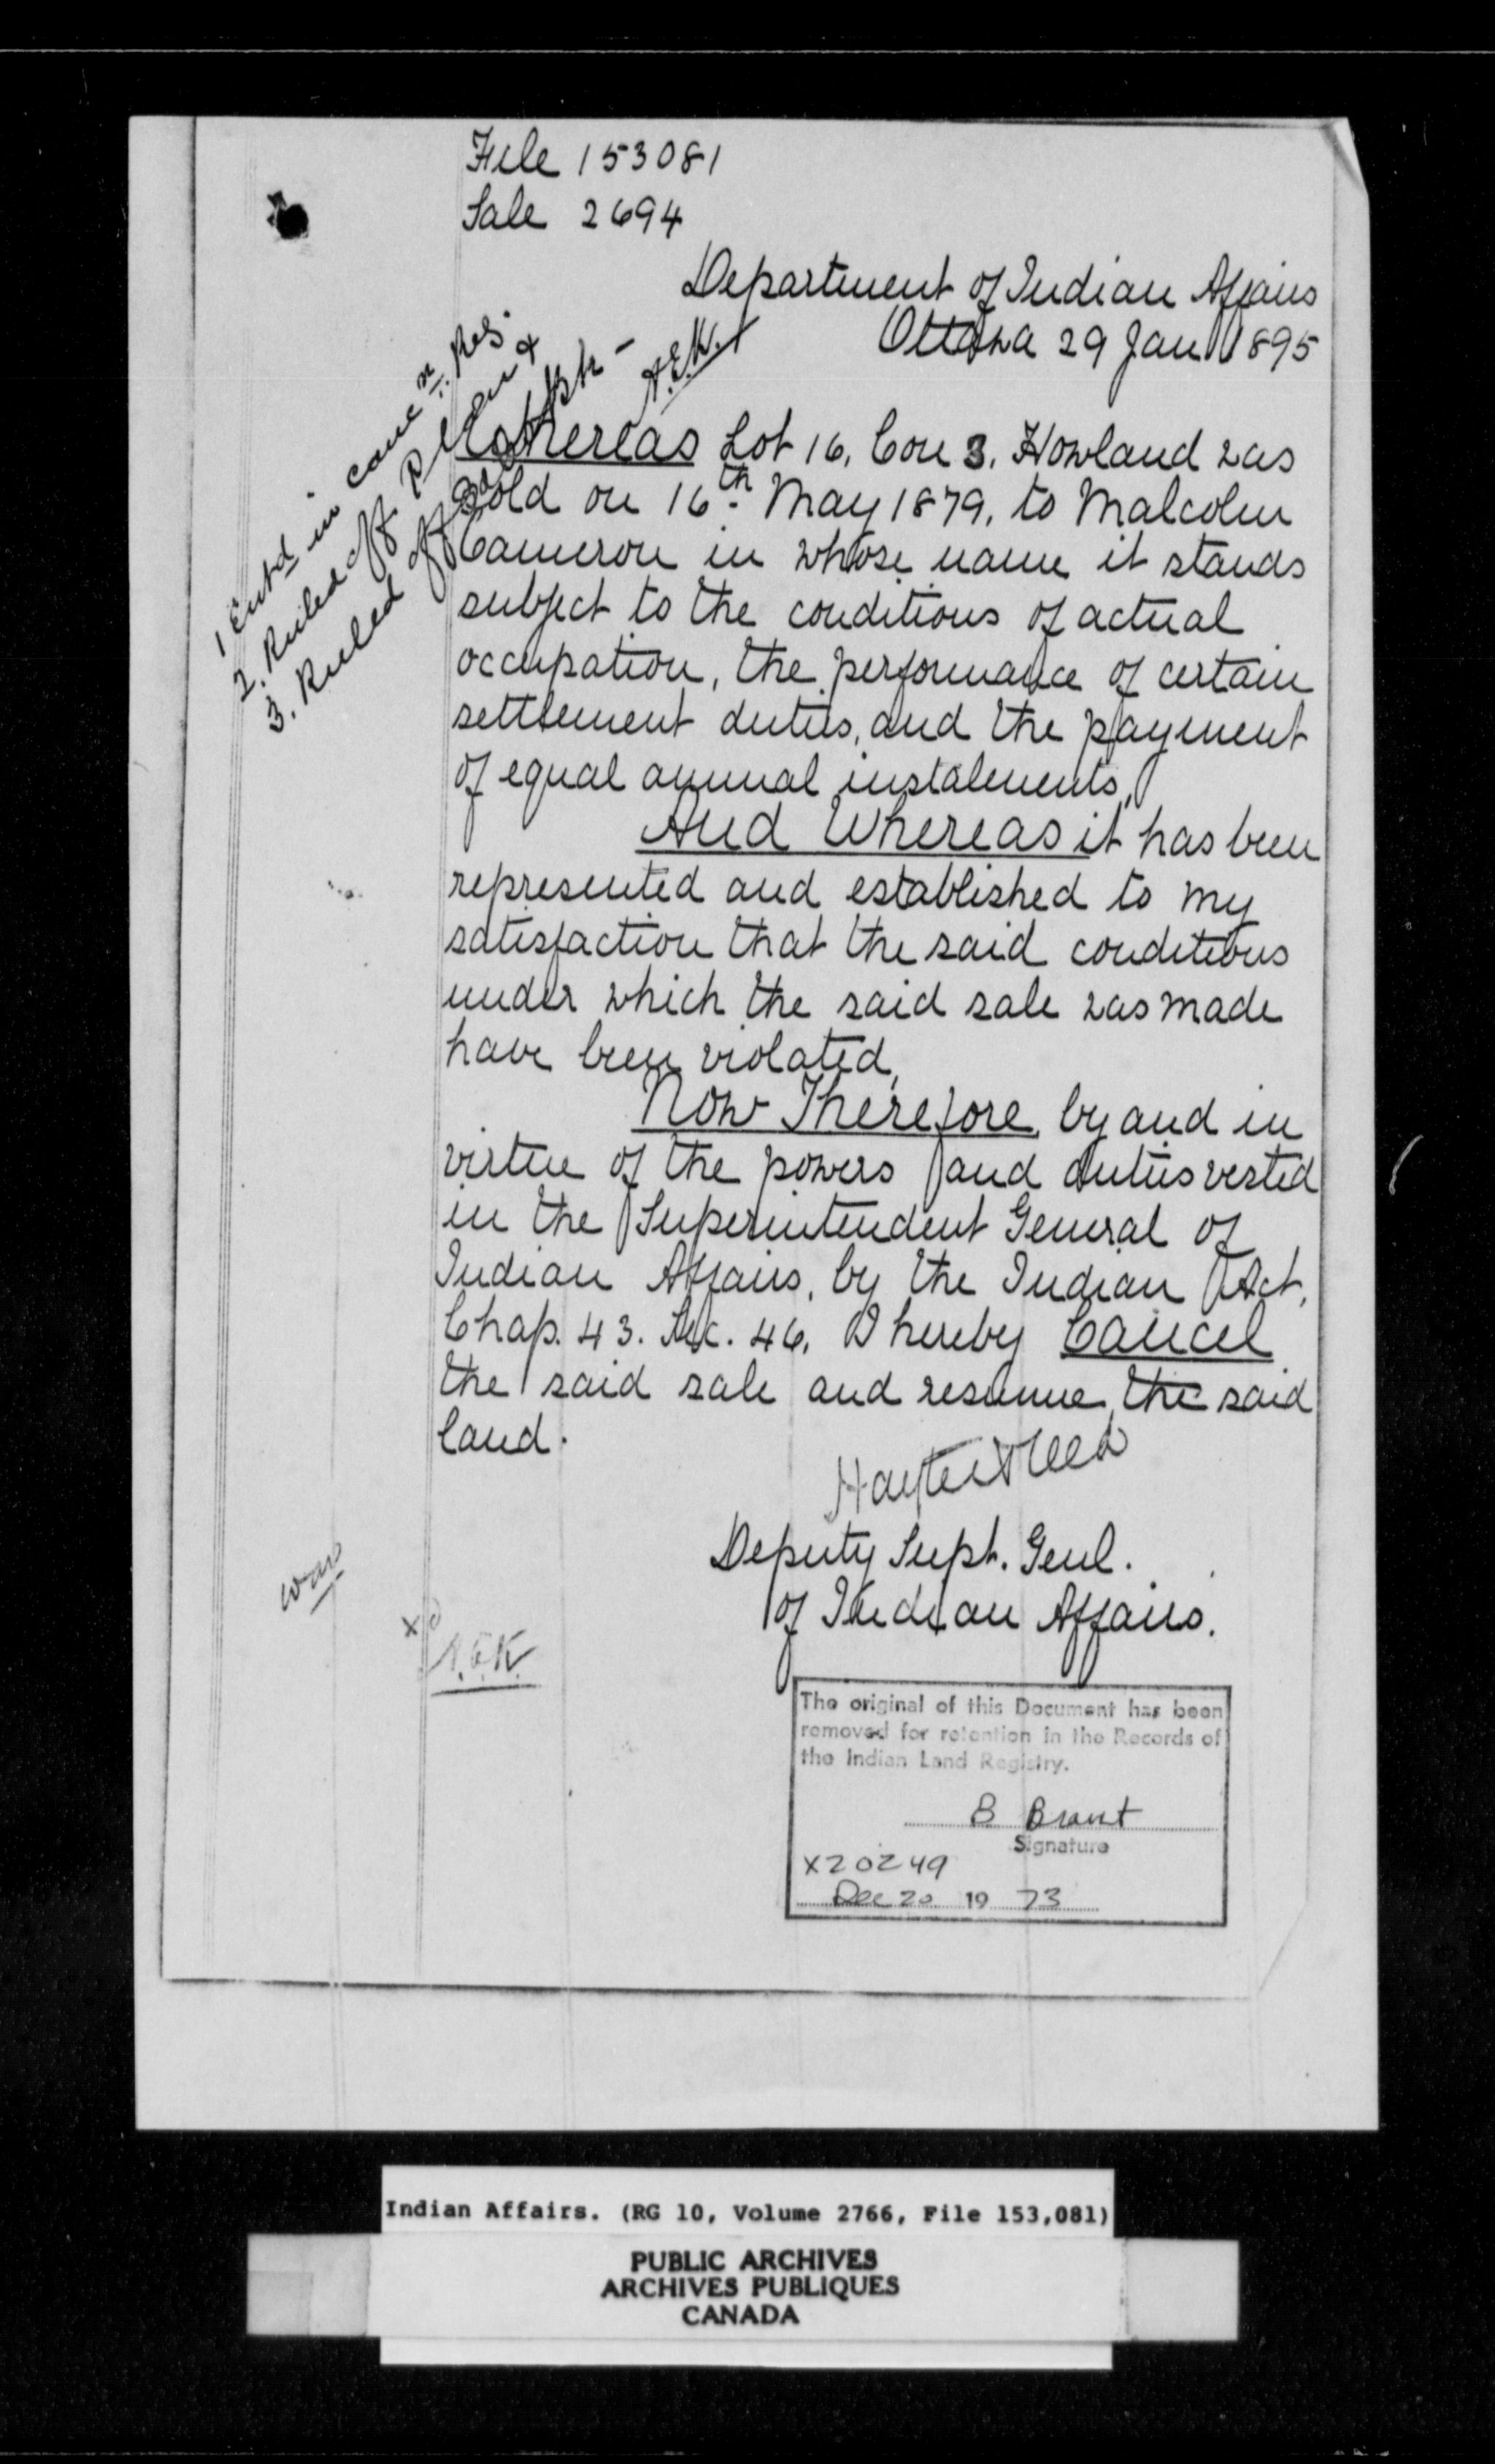 File 153081
Sale 2694
Department of Indian Affairs
Ottawa 29 Jan 1895
1 Entd in canc n. Reg.
2. Ruled off Plan &
3. Ruled off Sale Bk -
A.E.K.
Whereas Lot 16, Con 3, Howland was
sold on 16th May 1879, to Malcolm
Cameron in whose name it stands
subject to the conditions of actual
occupation, the performance of certain
settlement duties, and the payment
of equal annual instalments,
And Whereas it has been
represented and established to my
satisfaction that the said conditions
under which the said sale was made
have been violated,
Now Therefore, by and in
virtue of the powers and duties vested
in the Superintendent General of
Indian Affairs, by the Indian Act,
Chap. 43. Sec. 46, I hereby Cancel
the said sale and resume the said
land.
Hayter Reed
Deputy Supt. Genl.
of Indian Affairs.
A.E.K.
The original of this Document has been
removed for retention in the Records of
the Indian Land Registry.
B Brant
Signature
X20249
Dec 20 19 73
Indian Affairs. (RG 10, Volume 2766, File 153,081)
PUBLIC ARCHIVES
ARCHIVES PUBLIQUES
CANADA